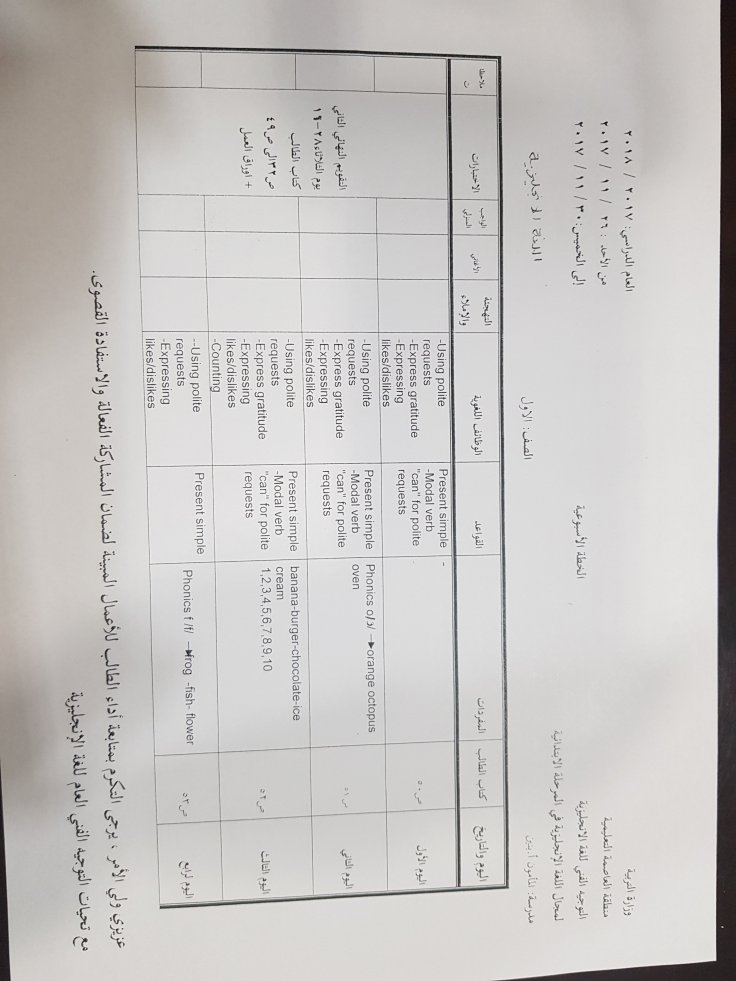 وزارة التربية
منطقة العاصمة التعليمية
التوجيه الفني للغة الانجليزية
لمجال اللغة الإنجليزية في المرحلة الابتدائية
العام الدراسي: ٢٠١٧ / ٢٠١٨
من الأحد : ٢٦ / ١١ / ٢٠١٧
إلى الخميس: ٣٠ / ١١ / ٢٠١٧
الخطة الأسبوعية
الصف: الأول
اللغة الانجليزية
اليوم والتاريخ
كتاب الطالب
المفردات
القواعد
الوظائف اللغوية
التهجئة والإملاء
الأغاني
الواجب المنزلي
الاختبارات
ملاحظا
ت
اليوم الأول
ص٥٠
-
Present simple
-Modal verb
"can" for polite
requests
-Using polite
requests
-Express gratitude
-Expressing
likes/dislikes
اليوم الثاني
ص٥١
Phonics o/ɔ/ →orange octopus
oven
Present simple
-Modal verb
"can" for polite
requests
-Using polite
requests
-Express gratitude
-Expressing
likes/dislikes
التقويم النهائي الثاني
يوم الثلاثاء٢٨-١٩
كتاب الطالب
ص٣٢الى ص٤٩
+ اوراق العمل
اليوم الثالث
ص٥٢
banana-burger-chocolate-ice
cream
1,2,3,4,5,6,7,8,9,10
Present simple
-Modal verb
"can" for polite
requests
-Using polite
requests
-Express gratitude
-Expressing
likes/dislikes
-Counting
اليوم لرابع
ص٥٣
Phonics f /f/ →frog -fish- flower
Present simple
--Using polite
requests
-Expressing
likes/dislikes
عزيزي ولي الأمر ، يرجى التكرم بمتابعة أداء الطالب للأعمال المبينة لضمان المشاركة الفعالة والاستفادة القصوى.
مع تحيات التوجيه الفني العام للغة الإنجليزية